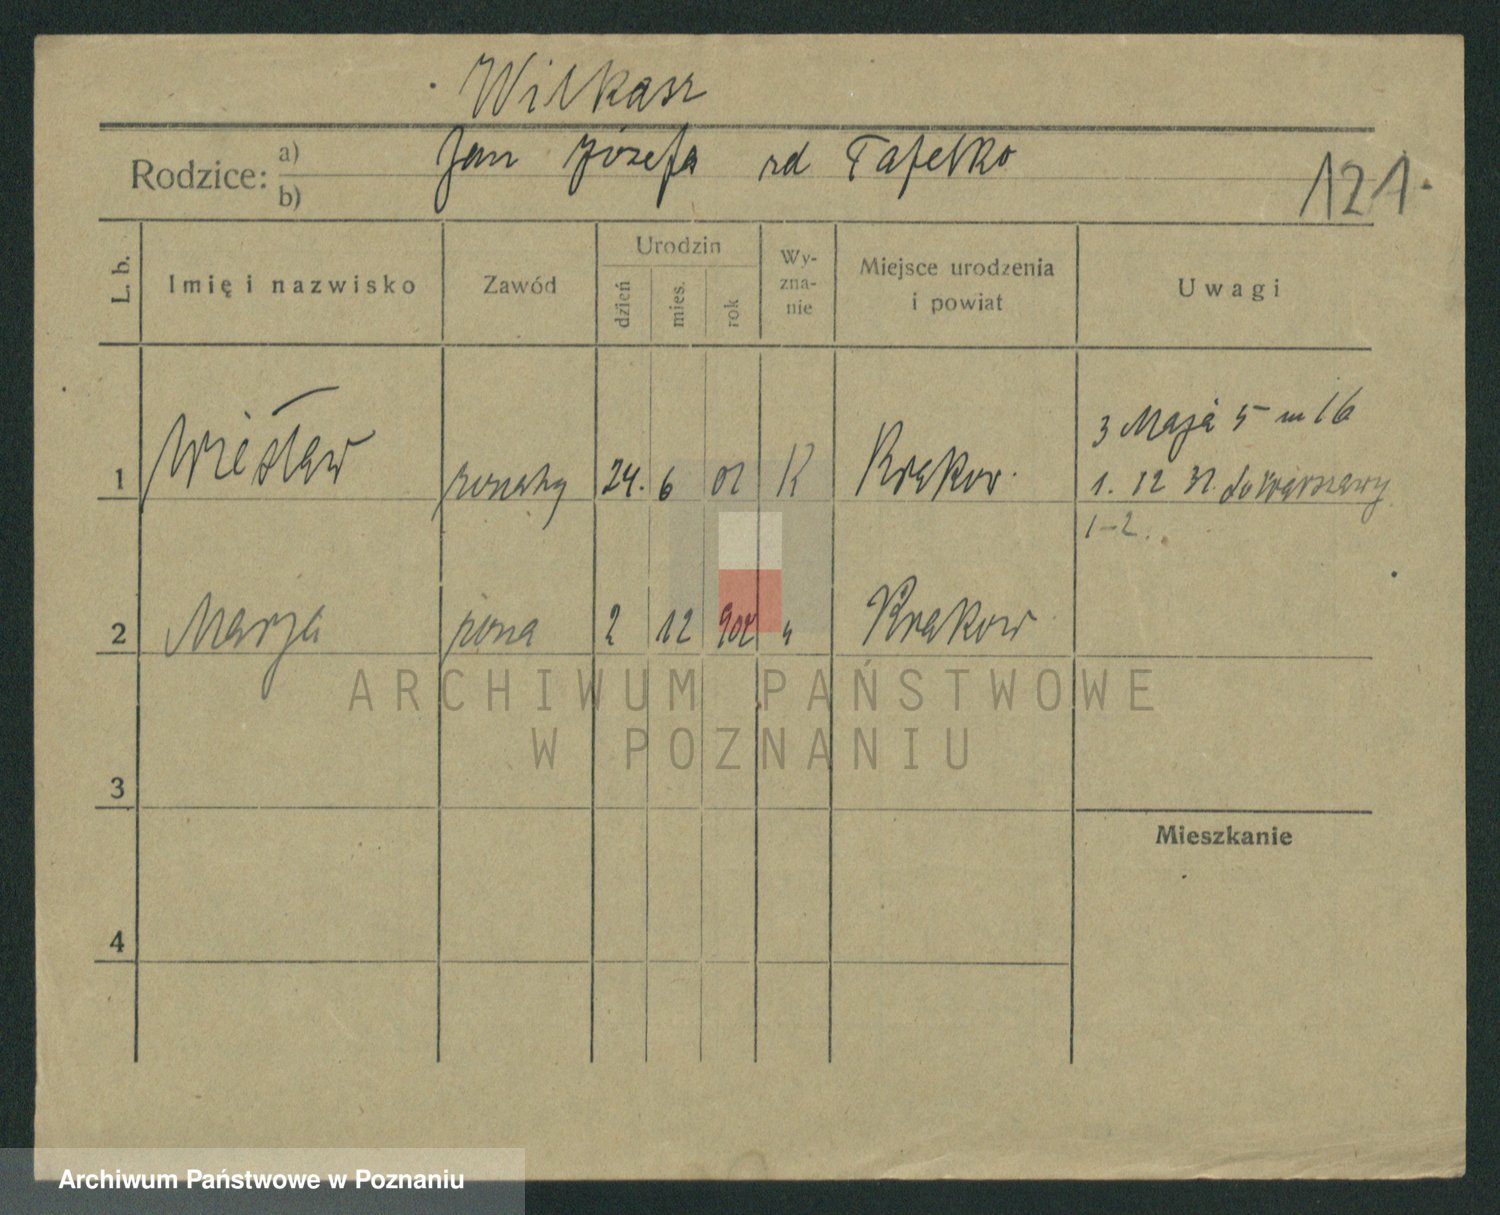 Wilkasz
Rodzice: a) b)
Jan Józefa zd Tafelko
121.
L. b.
Imię i nazwisko
Zawód
Urodzin
dzień
mies.
rok
Wy-
zna-
nie
Miejsce urodzenia
i powiat
Uwagi
1 Wiesław żonaty 24. 6 01 K Krakow.
3 Maja 5 m 16
1. 12 31. do Warszawy
1-2.
2 Marja żona 2 12 902 " Krakow
3
Mieszkanie
4
ARCHIWUM PAŃSTWOWE
W POZNANIU
Archiwum Państwowe w Poznaniu